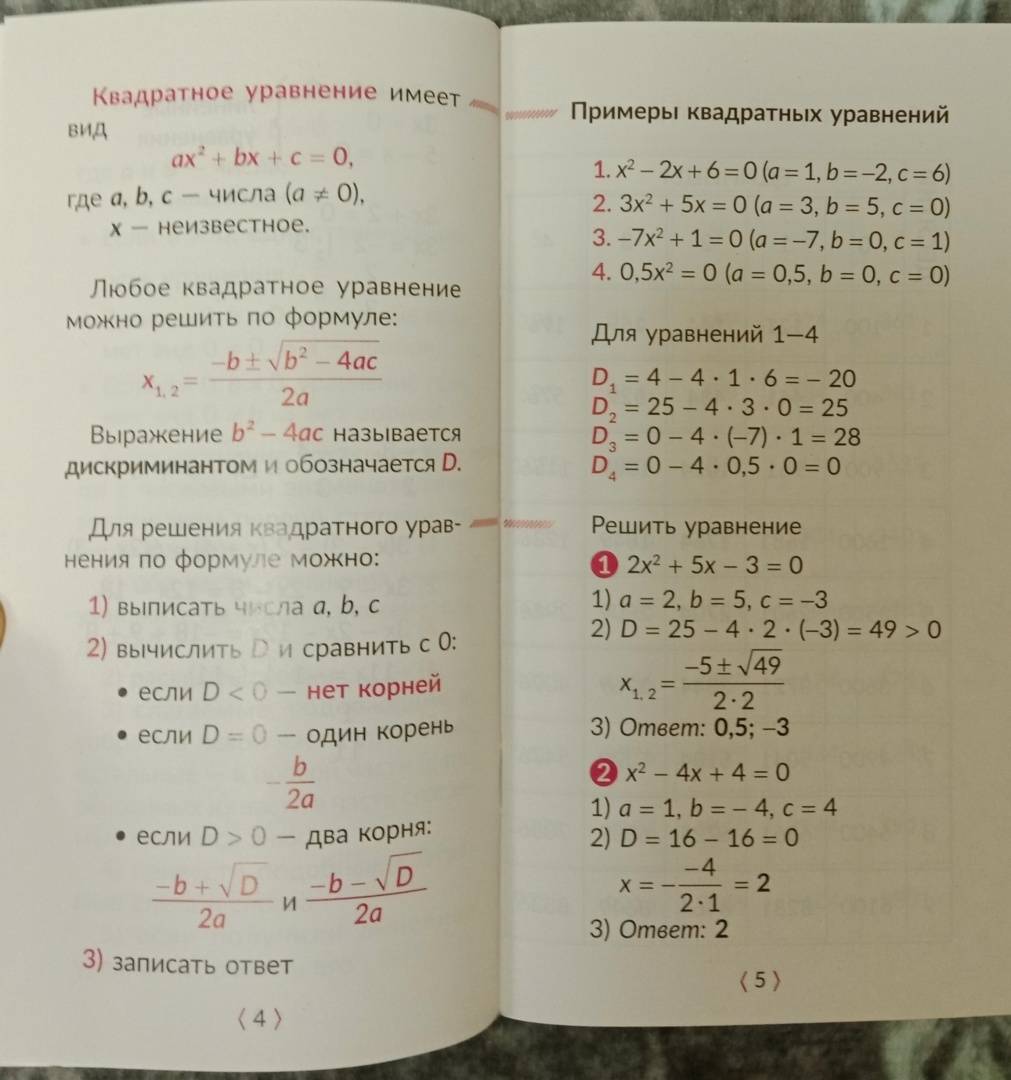 Квадратное уравнение имеет
вид
ax² + bx + c = 0,
где a, b, c — числа (a ≠ 0),
x — неизвестное.
Любое квадратное уравнение
можно решить по формуле:
x₁,₂ = (−b ± √(b² − 4ac)) / 2a
Выражение b² − 4ac называется
дискриминантом и обозначается D.
Для решения квадратного урав-
нения по формуле можно:
1) выписать числа a, b, c
2) вычислить D и сравнить с 0:
• если D < 0 — нет корней
• если D = 0 — один корень
−b/2a
• если D > 0 — два корня:
(−b + √D)/2a и (−b − √D)/2a
3) записать ответ
⟨ 4 ⟩
Примеры квадратных уравнений
1. x² − 2x + 6 = 0 (a = 1, b = −2, c = 6)
2. 3x² + 5x = 0 (a = 3, b = 5, c = 0)
3. −7x² + 1 = 0 (a = −7, b = 0, c = 1)
4. 0,5x² = 0 (a = 0,5, b = 0, c = 0)
Для уравнений 1—4
D₁ = 4 − 4 · 1 · 6 = − 20
D₂ = 25 − 4 · 3 · 0 = 25
D₃ = 0 − 4 · (−7) · 1 = 28
D₄ = 0 − 4 · 0,5 · 0 = 0
Решить уравнение
1 2x² + 5x − 3 = 0
1) a = 2, b = 5, c = −3
2) D = 25 − 4 · 2 · (−3) = 49 > 0
x₁,₂ = (−5 ± √49) / 2 · 2
3) Ответ: 0,5; −3
2 x² − 4x + 4 = 0
1) a = 1, b = − 4, c = 4
2) D = 16 − 16 = 0
x = − −4/2 · 1 = 2
3) Ответ: 2
⟨ 5 ⟩